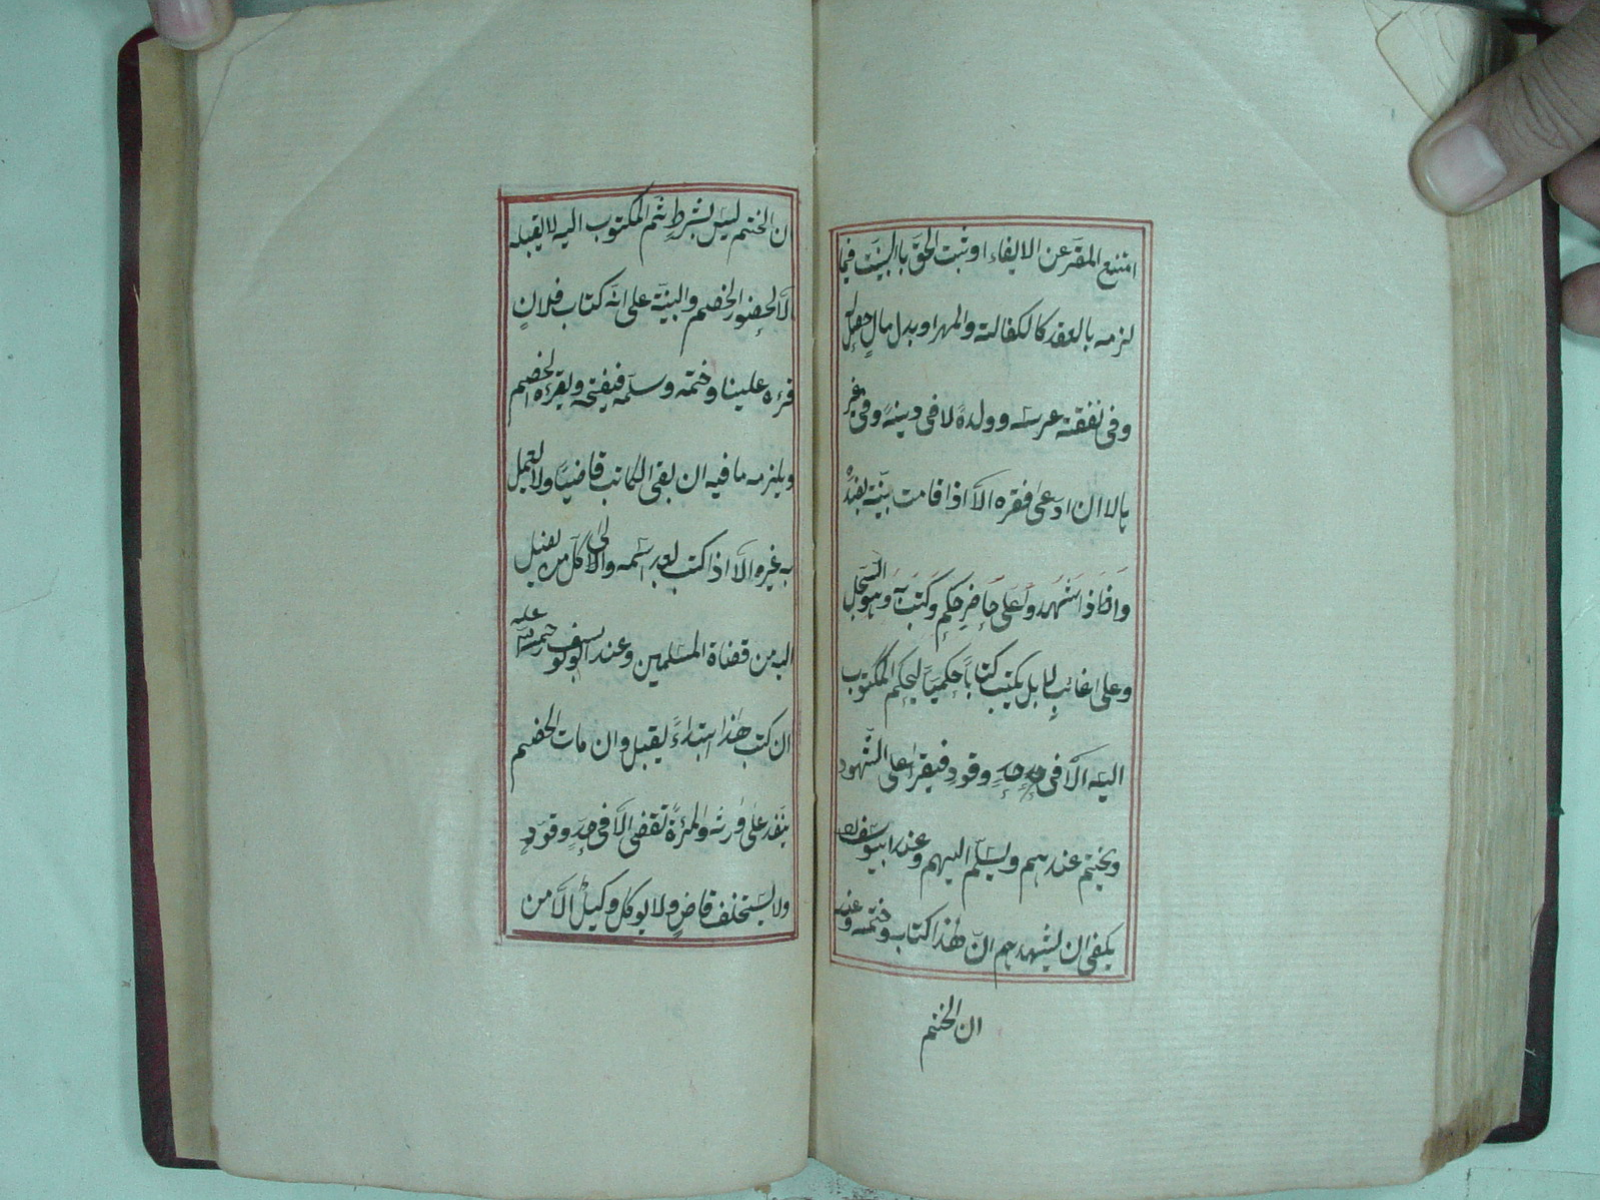 امتنع المقر عن الايفاء او ثبت الحق باالبينة فيما
لزمه بالعقد كالكفالة والمهر او بدل مال حصل
وفى نفقة عرسه وولده لا فى دينه وفى غير
ها لا ان ادعى فقره الا اذا قامت بينة بضده
واذا شهدوا على حاضر حكم وكتب به وهو السجل
وعلى غائب لا بل يكتب كتابا حكميا ليحكم المكتوب
اليه الا فى حد وقود فيقرا على الشهود
ويختم عندهم ويسلم اليهم وعند ابيوسف
يكفى ان يشهدهم ان هذا كتابه وختمه وعنه
ان الختم
ان الختم ليس بشرط ثم المكتوب اليه لا يقبله
الا لحضور الخصم والبينة على انه كتاب فلان
قرءه علينا وختمه وسلمه فيفتحه ويقرءه الخصم
ويلزمه ما فيه ان بقى الكاتب قاضيا ولا يعمل
به غيره الا اذا كتب بعد اسمه والى كل من يصل
اليه من قضاة المسلمين وعند ابو يوسف رحمة الله عليه
ان كتب هذا ابتداء يقبل وان مات الخصم
ينفذ على وارثه والمرءة تقضى الا فى حد وقود
ولا يستخلف قاض ولا يوكل وكيل الا من